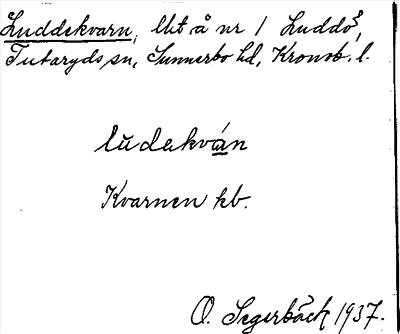 Luddekvarn, lht å nr 1 Luddö,
Tutaryds sn, Sunnerbo hd, Kronob. l.
lùdakván
Kvarnen kb.
O. Segerbäck 1937.